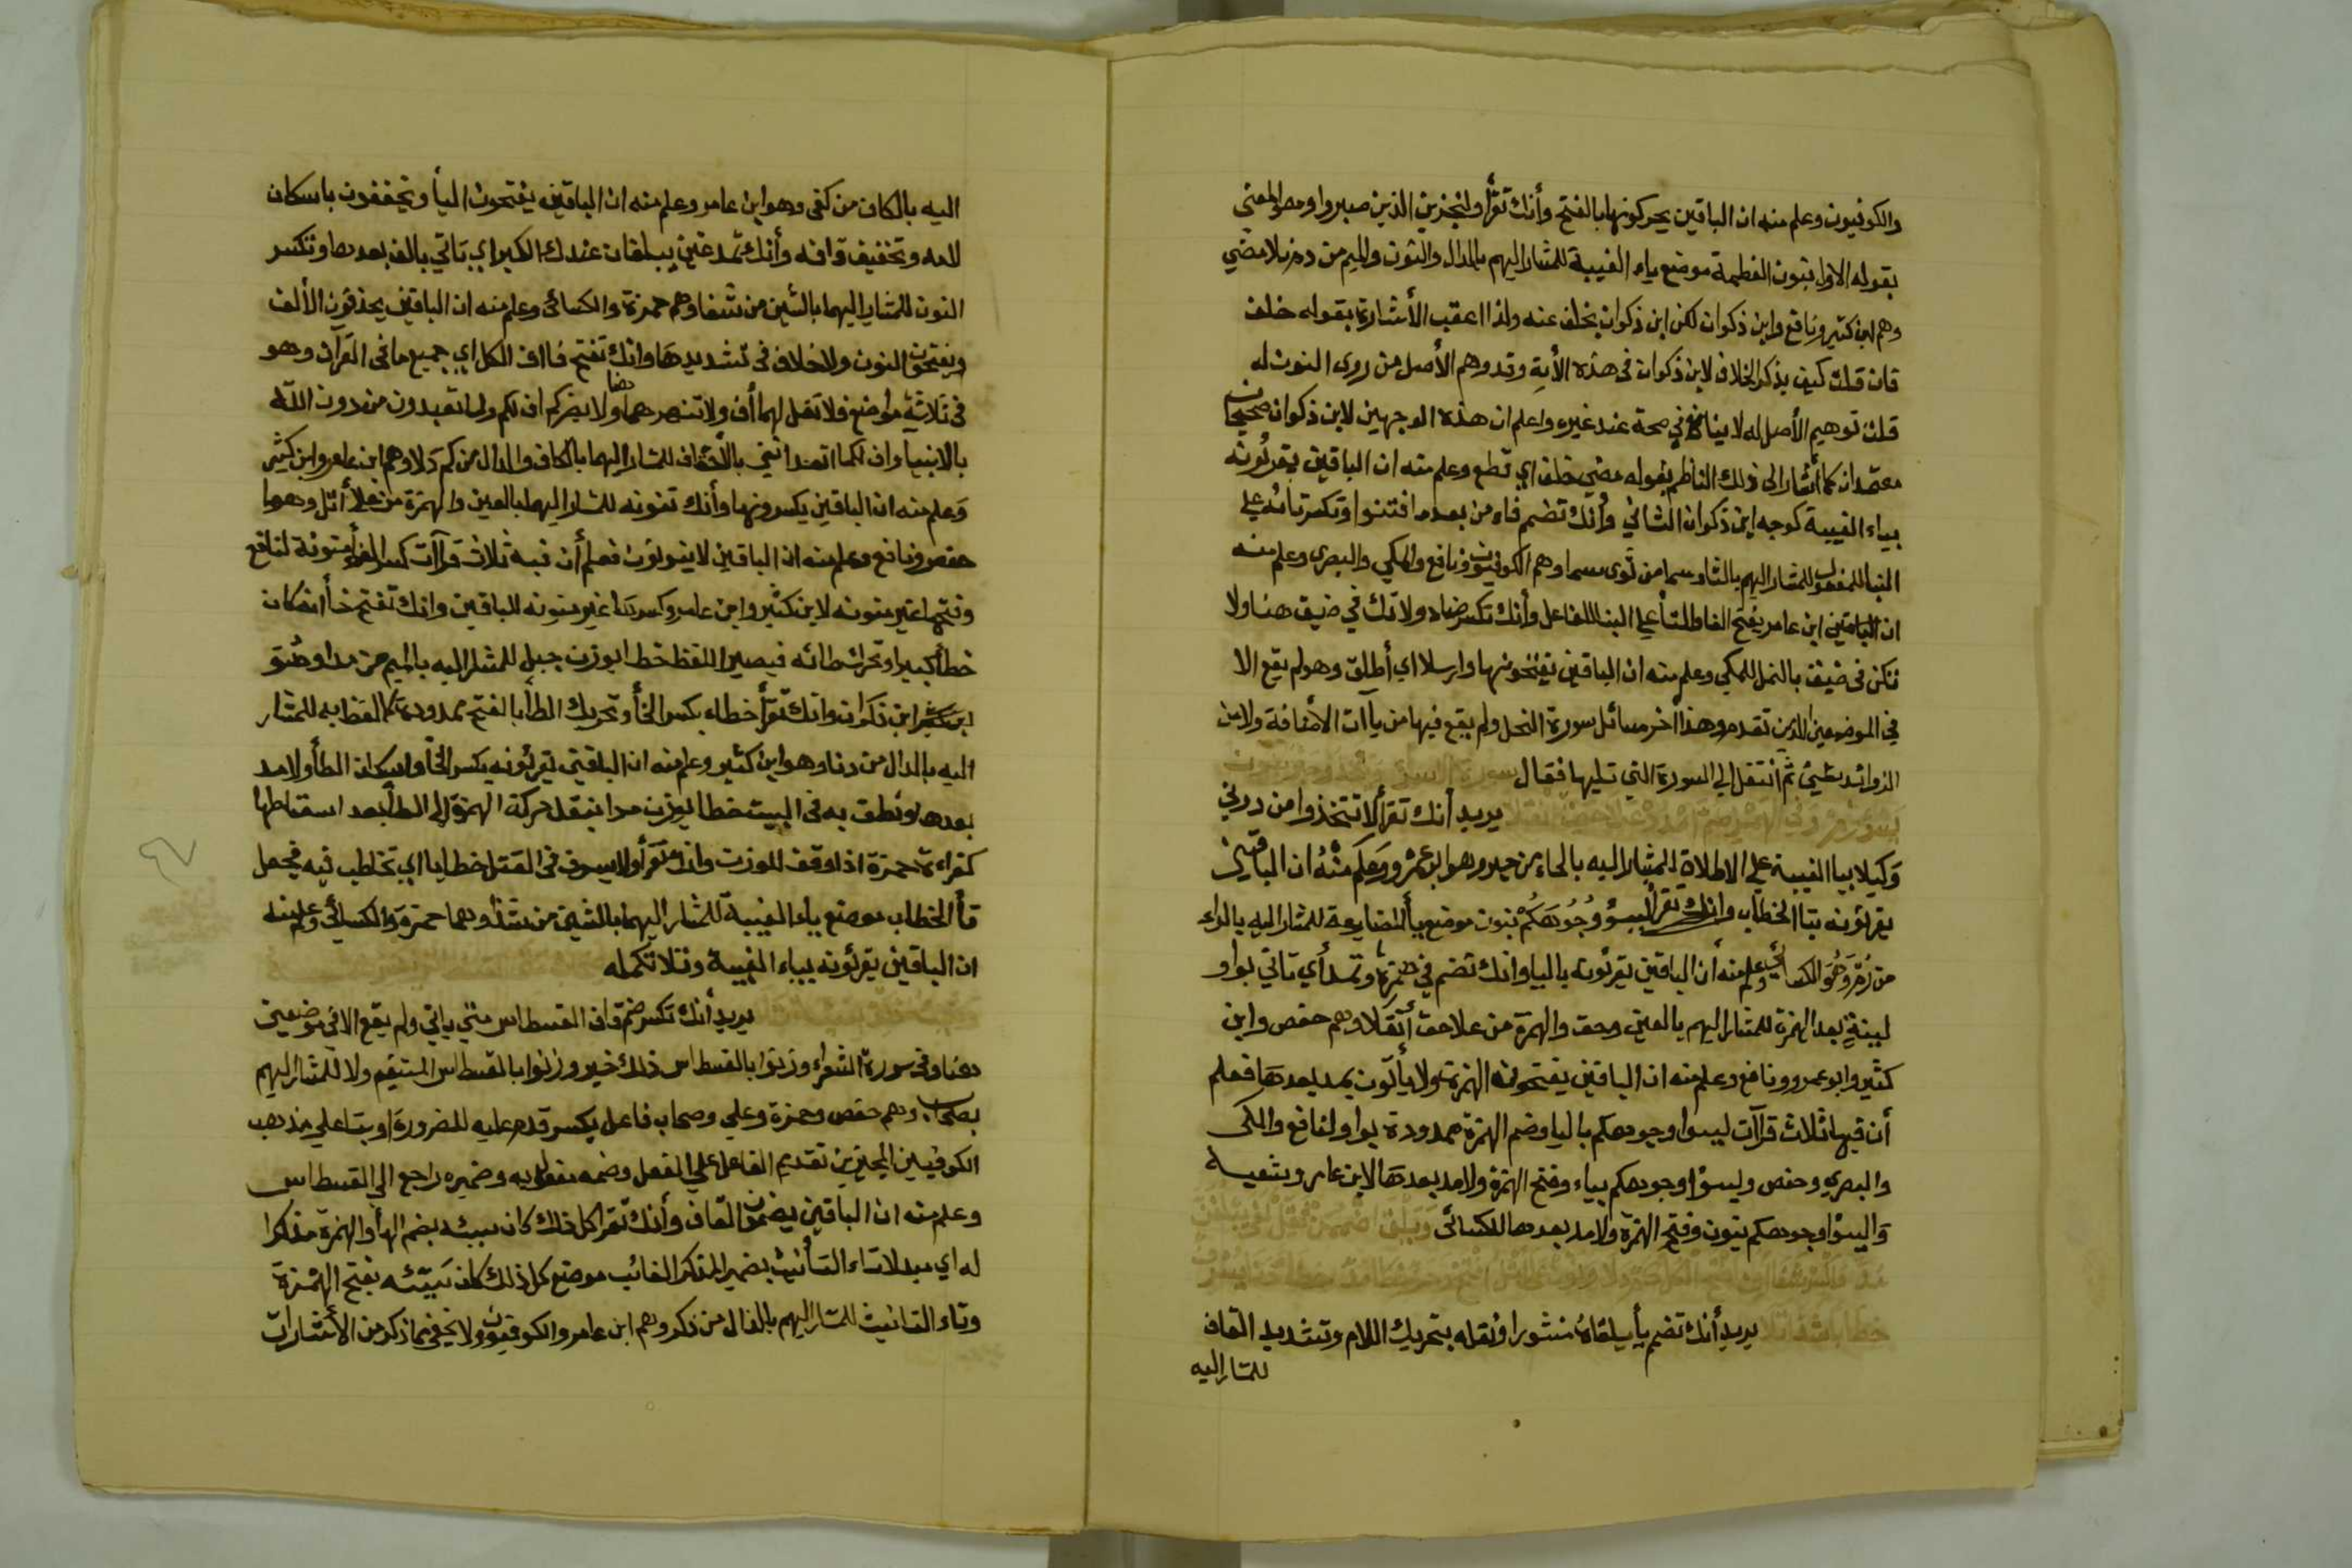 والكوفيون وعلم منه ان الباقين يحركونها بالفتح وأنك تقرأ ولنجزين الذين صبروا وهو المعني
بقوله الاول بنون العظمة موضع ياء الغيبة للمشار اليهم بالدال والنون والميم من دم نلا مضي
وهم ابن كثير ونافع وابن ذكوان لكن ابن ذكوان بخلف عنه ولذا اعقب الأشارة بقوله خلف
فان قلت كيف يذكر الخلاف لابن ذكوان في هذه الأية وقد وهم الأصل من روى النون له
قلت توهيم الأصل له لا ينافي صحة عند غيره واعلم ان هذه الوجهين لابن ذكوان صحيحان
معتمدان كما أشار الى ذلك الناظم بقوله مضي خلف اي قطع وعلم منه ان الباقين يقرئونه
بياء الغيبة كوجه ابن ذكوان الثاني وأنك تضم فاء من بعد ما افتنوا وتكسر تائه علي
البنا للمفعول للمشار اليهم بالثا وسما من ثوى سما وهم الكوفيون ونافع والمكي والبصري وعلم منه
ان الباقين ابن عامر يفتح الفا والتأ علي البنا للفاعل وأنك تكسر ضاد ولا تك في ضيق هنا ولا
تكن في ضيق بالنمل للمكي وعلم منه ان الباقين يفتحونها وارسلا اي أطلق وهو لم يقع الا
في الموضعين الذين تقدم وهذا أخر مسائل سورة النحل ولم يقع فيها من يآات الأضافة ولا من
الزوائد بشئ ثم أنتقل الي السورة التي تليها فقال
يريد أنك تقرأ الا تتخذوا من دوني
وكيلا بيا الغيبة علي الاطلاق للمشار اليه بالحاء من حبر وهو ابو عمرو وعلم منه ان الباقين
يقرئونه بتا الخطاب وانك تقرأ ليسؤ وجوهكم بنون موضع يأ المضارعة للمشار اليه بالراء
من رم وهو الكسائي وعلم منه أن الباقين يقرئونه باليا وانك تضم في همزة وتمد أي تاتي بواو
لينة بعد الهمزة للمشار اليهم بالعين وحق والهمزة من علا حق أثقلا وهم حفص وابن
كثير وابو عمرو ونافع وعلم منه ان الباقين يفتحون الهمزة ولا يأتون بمد بعدها فعلم
أن فيها ثلاث قرآات ليسوا وجوهكم باليا وضم الهمزة ممدودة بواو لنافع والمكي
والبصري وحفص وليسؤا وجوهكم بياء وفتح الهمزة ولا مد بعدها لابن عامر وشعبه
والنسؤا وجوهكم بنون وفتح الهمزة ولا مد بعدها للكسائي
يريد أنك تضم يأ يلقاه منشورا وتقله بتحريك اللام وتشديد القاف
للمشار اليه
اليه بالكاف من كفى وهو ابن عامر وعلم منه ان الباقين يفتحون اليأ ويخففون باسكان
لامه وتخفيف قافه وأنك تمد غين يبلغان عندك الكبر اي تاتي بالف بعدها وتكسر
النون للمشار اليهما بالشين من شفا وهم حمزة والكسائي وعلم منه ان الباقين يحذفون الألف
ويفتحون النون ولا خلاف في تشديدها وانك تفتح فا اف الكل اي جميع ما في القرآن وهو
في ثلاثة مواضع فلا تقل لهما أف ولا تنهرهما هنا ولا يضركم اف لكم ولما تعبدون من دون الله
بالانبيا واف لكما اتعدانني بالأحقاف للمشار اليهما بالكاف والدال من كم دلا وهم ابن عامر وابن كثير
وعلم منه ان الباقين يكسرونها وأنك تنونه للمشار اليهما بالعين والهمزة من علا أثل وهما
حفص ونافع وعلم منه ان الباقين لا ينونون فعلم أن فيه ثلاث قرآات كسر الفأ منونة لنافع
وفتحها غير منونه لابن كثير وابن عامر وكسرها غير منونه للباقين وانك تفتح خأ انه كان
خطأ كبيرا وتحرك طائه فيصير اللفظ خطا بوزن جبل للمشار اليه بالميم من مدا وهو
ابن ذكوان وانك تقرأ خطاء بكسر الخأ وتحريك الطأ بالفتح ممدودة كما لفظ به للمشار
اليه بالدال من دنا وهو ابن كثير وعلم منه ان الباقين يقرئونه بكسر الخأ واسكان الطأ ولا مد
بعدها ونطق به في البيت خطا بوزن مدا بنقل حركة الهمزة الى الطأ بعد اسقاطها
كقراءة حمزة اذا وقف للوزن وانك تقرأ ولا يسوف في القتل خطابا اي تخاطب فيه فيجعل
تأ الخطاب موضع ياء الغيبة للمشار اليهما بالشين من شذا وهما حمزة والكسائي وعلم منه
ان الباقين يقرئونه بياء الغيبة وتلا تكمله
يريد أنك تكسر ضم قاف القسطاس متي ياتي ولم يقع الا في موضعين
هنا وفي سورة الشعراء وزنوا بالقسطاس ذلك خير وزنوا بالقسطاس المستقيم ولا للمشار اليهم
بصحاب وهم حفص وحمزة وعلي وصحاب فاعل يكسر قدم عليه للضرورة او بنا علي مذهب
الكوفيين المجيزين تقديم الفاعل علي الفعل وضمه مفعول به وضميره راجع الي القسطاس
وعلم منه ان الباقين يضمون القاف وأنك تقرا كل ذلك كان سيئه بضم الهأ والهمزة مذكرا
له اي مبدلا تاء التأنيث بضمير المذكر الغائب موضع كل ذلك كان سيئه بفتح الهمزة
وتاء التانيث للمشار اليهم بالذال من ذكر وهم ابن عامر والكوفيون ولا يخفي ما ذكر من الأشارات